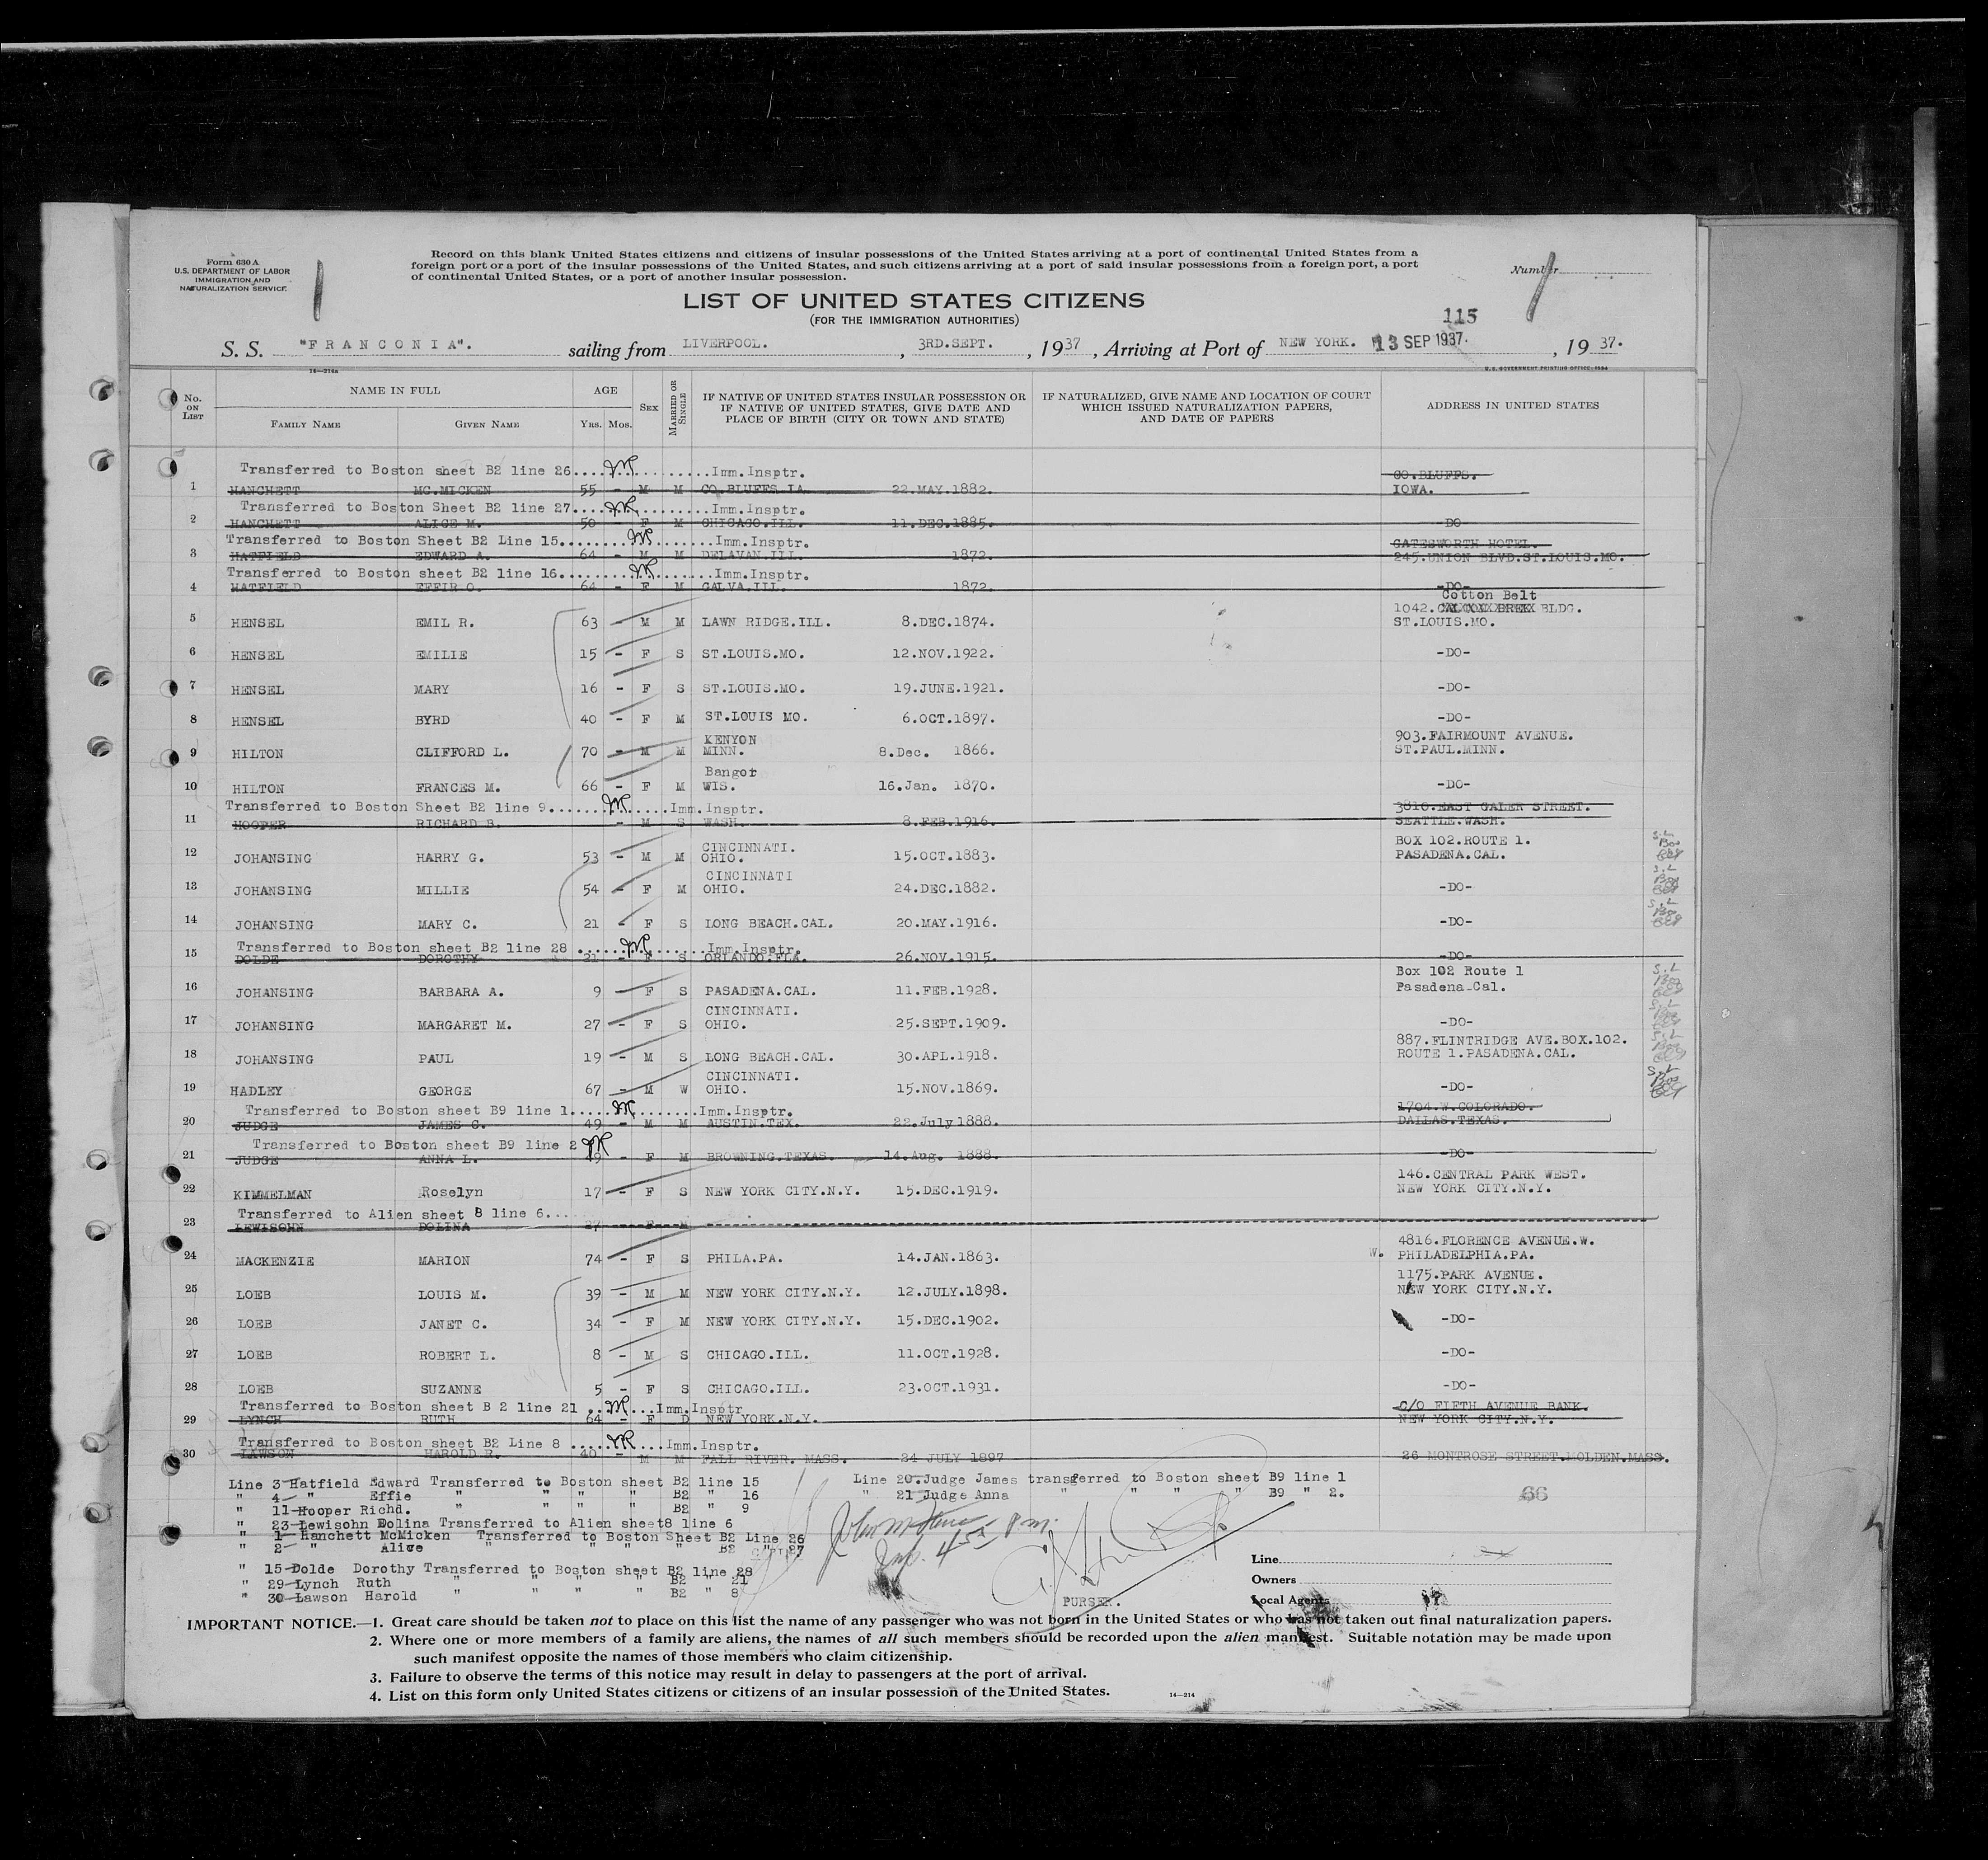 Form 630 A
U.S. DEPARTMENT OF LABOR
IMMIGRATION AND
NATURALIZATION SERVICE
Record on this blank United States citizens and citizens of insular possessions of the United States arriving at a port of continental United States from a
foreign port or a port of the insular possessions of the United States, and such citizens arriving at a port of said insular possessions from a foreign port, a port
of continental United States, or a port of another insular possession.
Number
LIST OF UNITED STATES CITIZENS
(FOR THE IMMIGRATION AUTHORITIES)
115
S. S. "FRANCONIA". sailing from LIVERPOOL. , 3RD.SEPT. , 1937 , Arriving at Port of NEW YORK. 13 SEP 1937. , 1937.
14—214a
U.S. GOVERNMENT PRINTING OFFICE—1934
No. ON LIST NAME IN FULL AGE SEX MARRIED OR SINGLE IF NATIVE OF UNITED STATES INSULAR POSSESSION OR IF NATIVE OF UNITED STATES, GIVE DATE AND PLACE OF BIRTH (CITY OR TOWN AND STATE) IF NATURALIZED, GIVE NAME AND LOCATION OF COURT WHICH ISSUED NATURALIZATION PAPERS, AND DATE OF PAPERS ADDRESS IN UNITED STATES
FAMILY NAME GIVEN NAME YRS. MOS.
Transferred to Boston sheet B2 line 26..........Imm.Insptr. CO.BLUFFS.
1 HANCHETT MC.MICKEN 55 - M M CO.BLUFFS.IA. 22.MAY.1882. IOWA.
Transferred to Boston Sheet B2 line 27..........Imm.Insptr.
2 HANCHETT ALICE M. 50 - F M CHICAGO.ILL. 11.DEC.1885. -DO-
Transferred to Boston Sheet B2 Line 15..........Imm.Insptr. GATESWORTH HOTEL.
3 HATFIELD EDWARD A. 64 - M M DELAVAN.ILL. 1872. 245.UNION BLVD.ST.LOUIS.MO.
Transferred to Boston sheet B2 line 16..........Imm.Insptr.
4 HATFIELD EFFIE O. 64 - F M GALVA.ILL. 1872. -DO-
Cotton Belt
1042. BLDG.
5 HENSEL EMIL R. 63 - M M LAWN RIDGE.ILL. 8.DEC.1874. ST.LOUIS.MO.
6 HENSEL EMILIE 15 - F S ST.LOUIS.MO. 12.NOV.1922. -DO-
7 HENSEL MARY 16 - F S ST.LOUIS.MO. 19.JUNE.1921. -DO-
8 HENSEL BYRD 40 - F M ST.LOUIS MO. 6.OCT.1897. -DO-
KENYON 903.FAIRMOUNT AVENUE.
9 HILTON CLIFFORD L. 70 - M M MINN. 8.Dec. 1866. ST.PAUL.MINN.
Bangor
10 HILTON FRANCES M. 66 - F M WIS. 16.Jan. 1870. -DO-
Transferred to Boston Sheet B2 line 9..........Imm.Insptr. 3816.EAST GALER STREET.
11 HOOPER RICHARD B. - M S WASH. 8.FEB.1916. SEATTLE.WASH.
CINCINNATI. BOX 102.ROUTE 1.
12 JOHANSING HARRY G. 53 - M M OHIO. 15.OCT.1883. PASADENA.CAL.
CINCINNATI
13 JOHANSING MILLIE 54 - F M OHIO. 24.DEC.1882. -DO-
14 JOHANSING MARY C. 21 - F S LONG BEACH.CAL. 20.MAY.1916. -DO-
Transferred to Boston sheet B2 line 28 ..........Imm.Insptr.
15 DOLDE DOROTHY 21 - F S ORLANDO.FLA. 26.NOV.1915. -DO-
Box 102 Route 1
16 JOHANSING BARBARA A. 9 - F S PASADENA.CAL. 11.FEB.1928. Pasadena.Cal.
CINCINNATI.
17 JOHANSING MARGARET M. 27 - F S OHIO. 25.SEPT.1909. -DO-
887.FLINTRIDGE AVE.BOX.102.
18 JOHANSING PAUL 19 - M S LONG BEACH.CAL. 30.APL.1918. ROUTE 1.PASADENA.CAL.
CINCINNATI.
19 HADLEY GEORGE 67 - M W OHIO. 15.NOV.1869. -DO-
Transferred to Boston sheet B9 line 1..........Imm.Insptr. 1704.W.COLORADO.
20 JUDGE JAMES C. 49 - M M AUSTIN.TEX. 22.July 1888. DALLAS.TEXAS.
Transferred to Boston sheet B9 line 2
21 JUDGE ANNA L. 49 - F M BROWNING.TEXAS. 14.Aug. 1888. -DO-
146.CENTRAL PARK WEST.
22 KIMMELMAN Roselyn 17 - F S NEW YORK CITY.N.Y. 15.DEC.1919. NEW YORK CITY.N.Y.
Transferred to Alien sheet 8 line 6....
23 LEWISOHN DOLINA 27 F M
4816.FLORENCE AVENUE.W.
24 MACKENZIE MARION 74 - F S PHILA.PA. 14.JAN.1863. W. PHILADELPHIA.PA.
1175.PARK AVENUE.
25 LOEB LOUIS M. 39 - M M NEW YORK CITY.N.Y. 12.JULY.1898. NEW YORK CITY.N.Y.
26 LOEB JANET C. 34 - F M NEW YORK CITY.N.Y. 15.DEC.1902. -DO-
27 LOEB ROBERT L. 8 - M S CHICAGO.ILL. 11.OCT.1928. -DO-
28 LOEB SUZANNE 5 - F S CHICAGO.ILL. 23.OCT.1931. -DO-
Transferred to Boston sheet B 2 line 21 ......Imm.Insptr C/O FIFTH AVENUE BANK.
29 LYNCH RUTH 64 - F D NEW YORK.N.Y. NEW YORK CITY.N.Y.
Transferred to Boston sheet B2 Line 8 ........Imm.Insptr.
30 LAWSON HAROLD R. 40 - M M FALL RIVER. MASS. 24 JULY 1897 26 MONTROSE STREET.MOLDEN.MASS.
Line 3-Hatfield Edward Transferred to Boston sheet B2 line 15 Line 20.Judge James transferred to Boston sheet B9 line 1
" 4- " Effie " " " " B2 " 16 " 21 Judge Anna " " " " B9 " 2.
" 11-Hooper Richd. " " " " B2 " 9
66
" 23-Lewisohn Dolina Transferred to Alien sheet8 line 6
" 1- Hanchett McMicken Transferred to Boston Sheet B2 Line 26
" 2- " Alice " " " " B2 " 27
" 15-Dolde Dorothy Transferred to Boston sheet B2 line 28
" 29-Lynch Ruth " " " B2 " 21
" 30-Lawson Harold " " " B2 " 8
PURSER.
Line
Owners
Local Agents
IMPORTANT NOTICE.—1. Great care should be taken not to place on this list the name of any passenger who was not born in the United States or who has not taken out final naturalization papers.
2. Where one or more members of a family are aliens, the names of all such members should be recorded upon the alien manifest. Suitable notation may be made upon
such manifest opposite the names of those members who claim citizenship.
3. Failure to observe the terms of this notice may result in delay to passengers at the port of arrival.
4. List on this form only United States citizens or citizens of an insular possession of the United States.
14—214